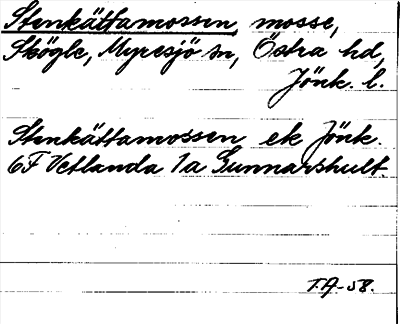 Stenkättamossen, mosse,
Skögle, Myresjö sn, Östra hd,
Jönk. l.
Stenkättamossen ek Jönk.
6F Vetlanda 1a Gunnarshult.
T.A-58.